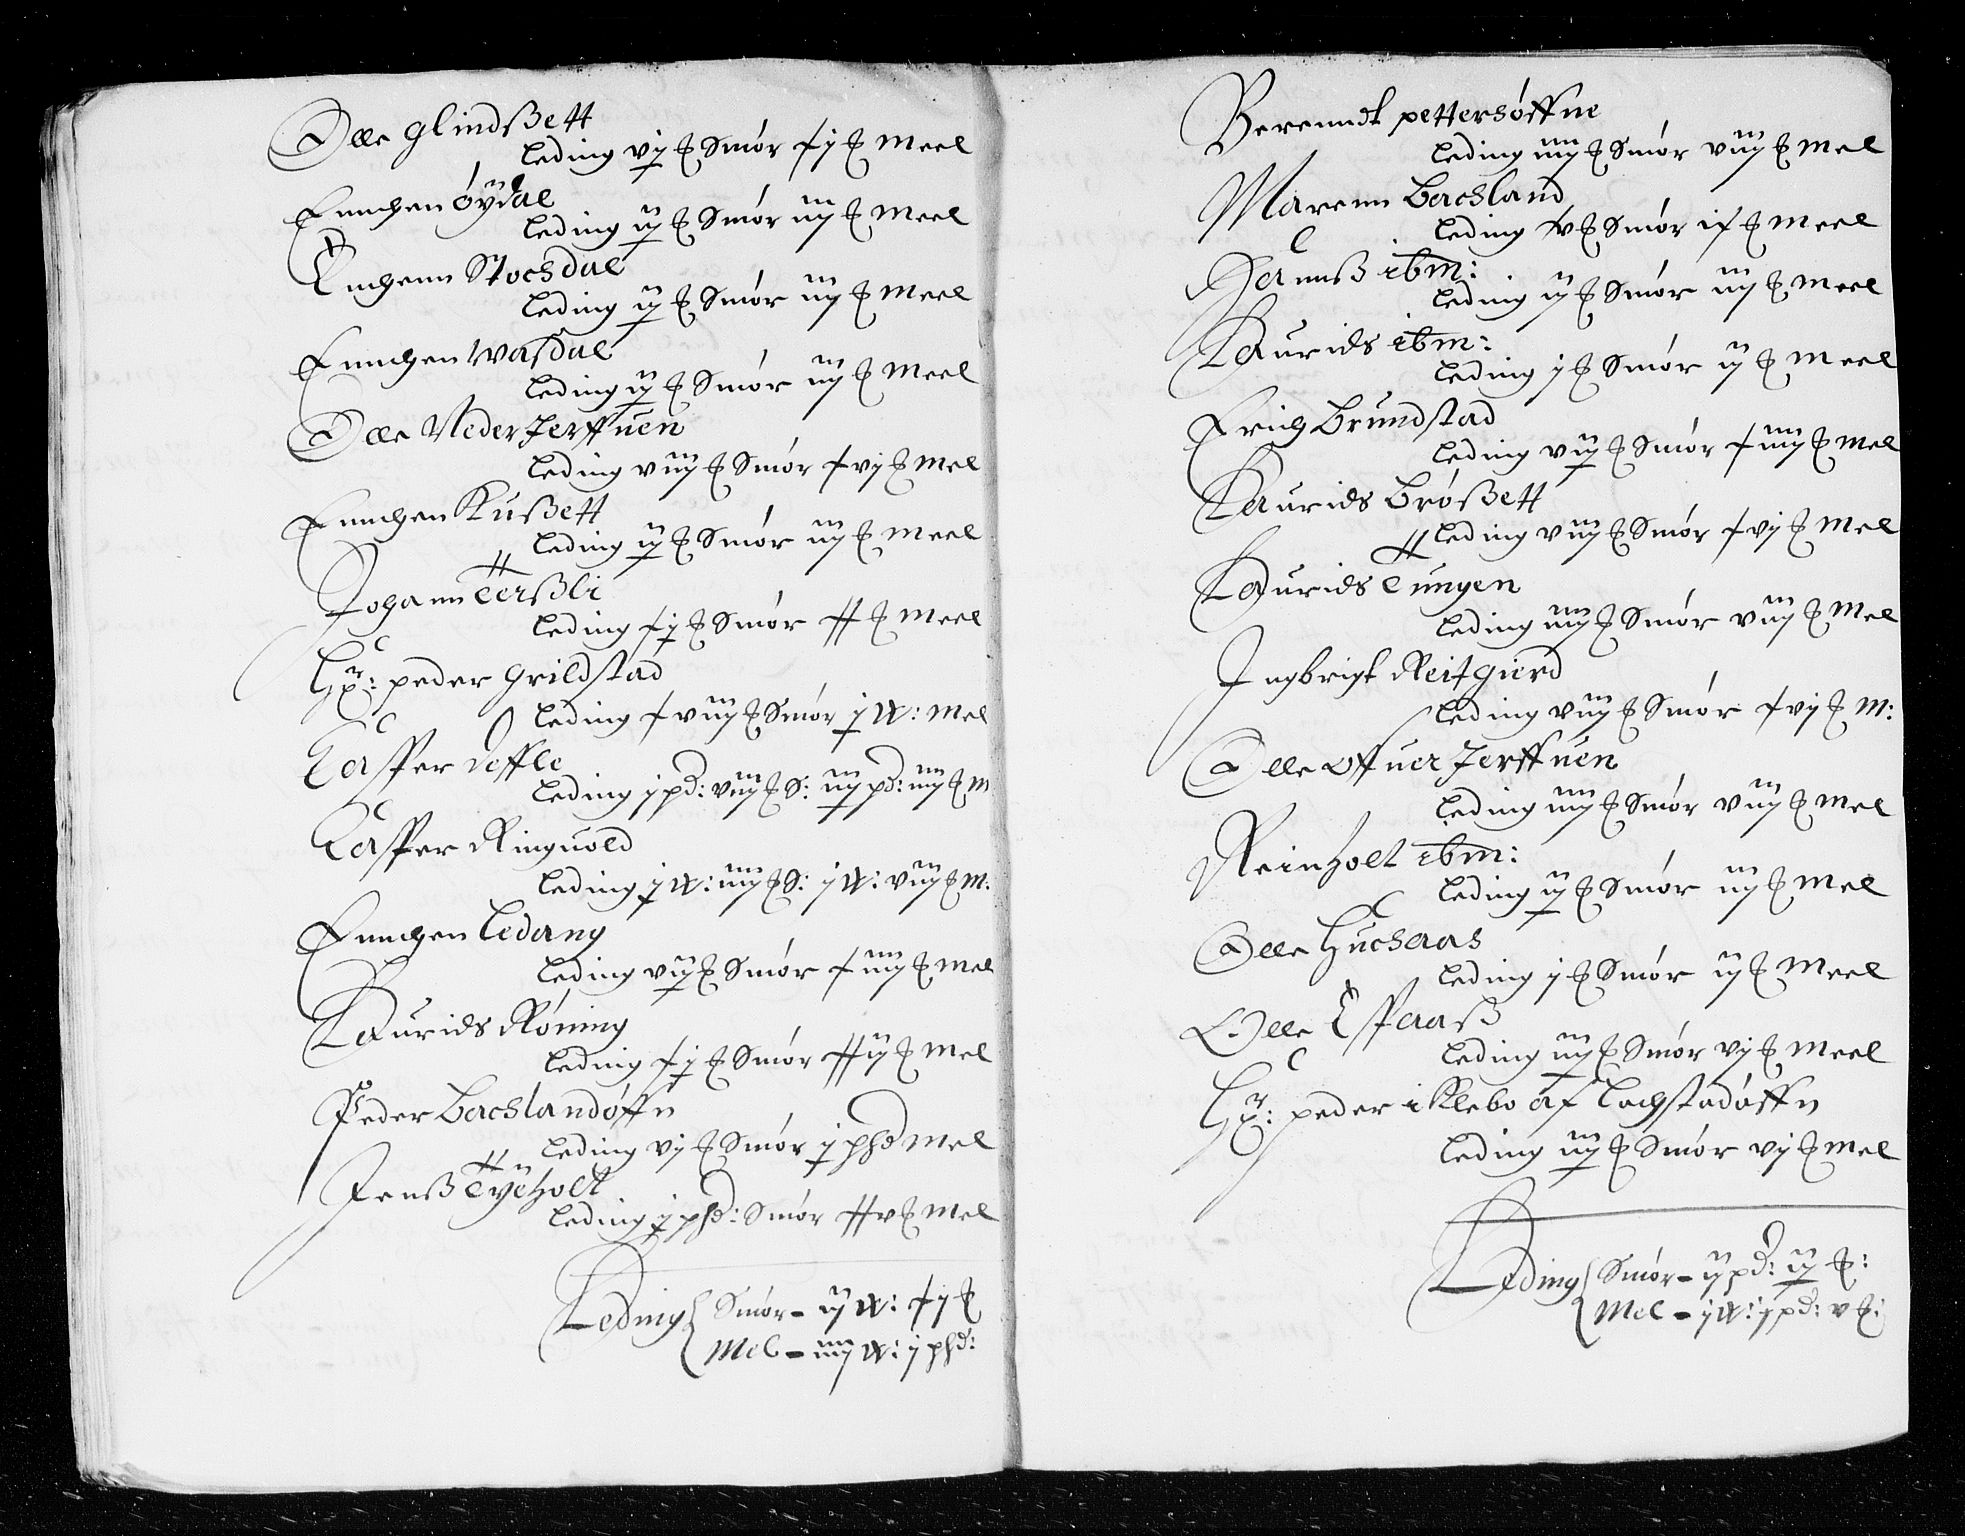 Olle Glindßett
Leding vj ℔ Smór xij ℔ Meel
Enuchen óÿdal
Leding iij ℔ Smór iiij ℔ Meel
Enchenn Stochsdal
Leding iij ℔ Smór iiij ℔ Meel
Enuchen Wasdal
Leding iij ℔ Smór iiij ℔ Meel
Olle Neder Jerffuen
Leding viij ℔ Smór xvj ℔ Mel
Enuchen Kußett
Leding iij ℔ Smór iiij ℔ Meel
Johann Terßli
Leding xj ℔ Smór xx ℔ Meel
Hr: peder Grildstad
Leding xviij ℔ Smór j W: Mel
Casper Deffle
Leding j pd: viij ℔ S: iij pd: iiij ℔ M
Casper Ringuold
Leding j W: iiij ℔ S: j W: viij ℔ M:
Enuchen Ledang
Leding vij ℔ Smór xiiij ℔ Mel
Laurids Róning
Leding xj ℔ Smór xxij ℔ Mel
Peder Bachslandóffn
Leding vj ℔ Smór j phd Mel
Jenß Tÿeholt
Leding j phd: Smór xxv ℔ Mel
Leding Smór - ij W: xj ℔
Mel - iiij W: j phd:
Berenndt pettersóffne
Leding iiij ℔ Smór viij ℔ Mel
Marenn Bachsland
Leding xv ℔ Smór ix ℔ Meel
Hanuß ibm:
Leding ij ℔ Smór iij ℔ Meel
Laurids ibm:
Leding j ℔ Smór ij ℔ Meel
Erich Brundstad
Leding vij ℔ Smór xiiij ℔ Mel
Laurids Bróßett
Leding viij ℔ Smór xvj ℔ Mel
Laurids Tungen
Leding iiij ℔ Smór viij ℔ Mel
Ingbrigt Reitgierd
Leding viij ℔ Smór xvj ℔ M:
Olle Offuer Jerffuen
Leding iiij ℔ Smór viij ℔ Mel
Reinholt ibm:
Leding ij ℔ Smór iij ℔ Mel
Olle Huchsaas
Leding j ℔ Smór ij ℔ Meel
Olle Espaaß
Leding iij ℔ Smór vj ℔ Meel
Hr: peder i Klebo af Lachstadóffn
Leding iij ℔ Smór vj ℔ Mel
Leding Smór - ij pd: ij ℔:
Mel - j W: j pd: v ℔: